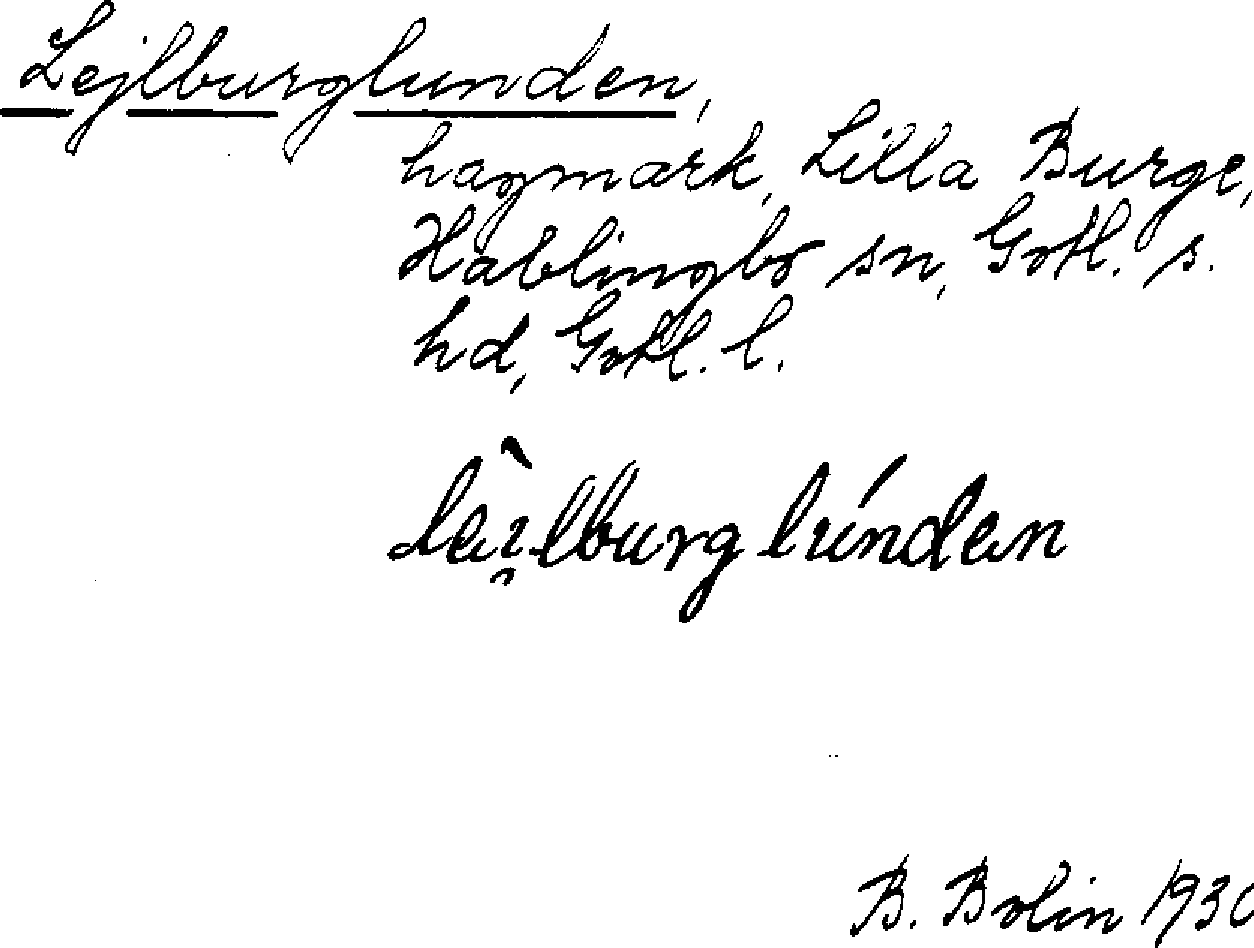 Lejlburglunden,
hagmark, Lilla Burge,
Hablingbo sn, Gotl. s.
hd, Gotl. l.
B. Bolin 1930